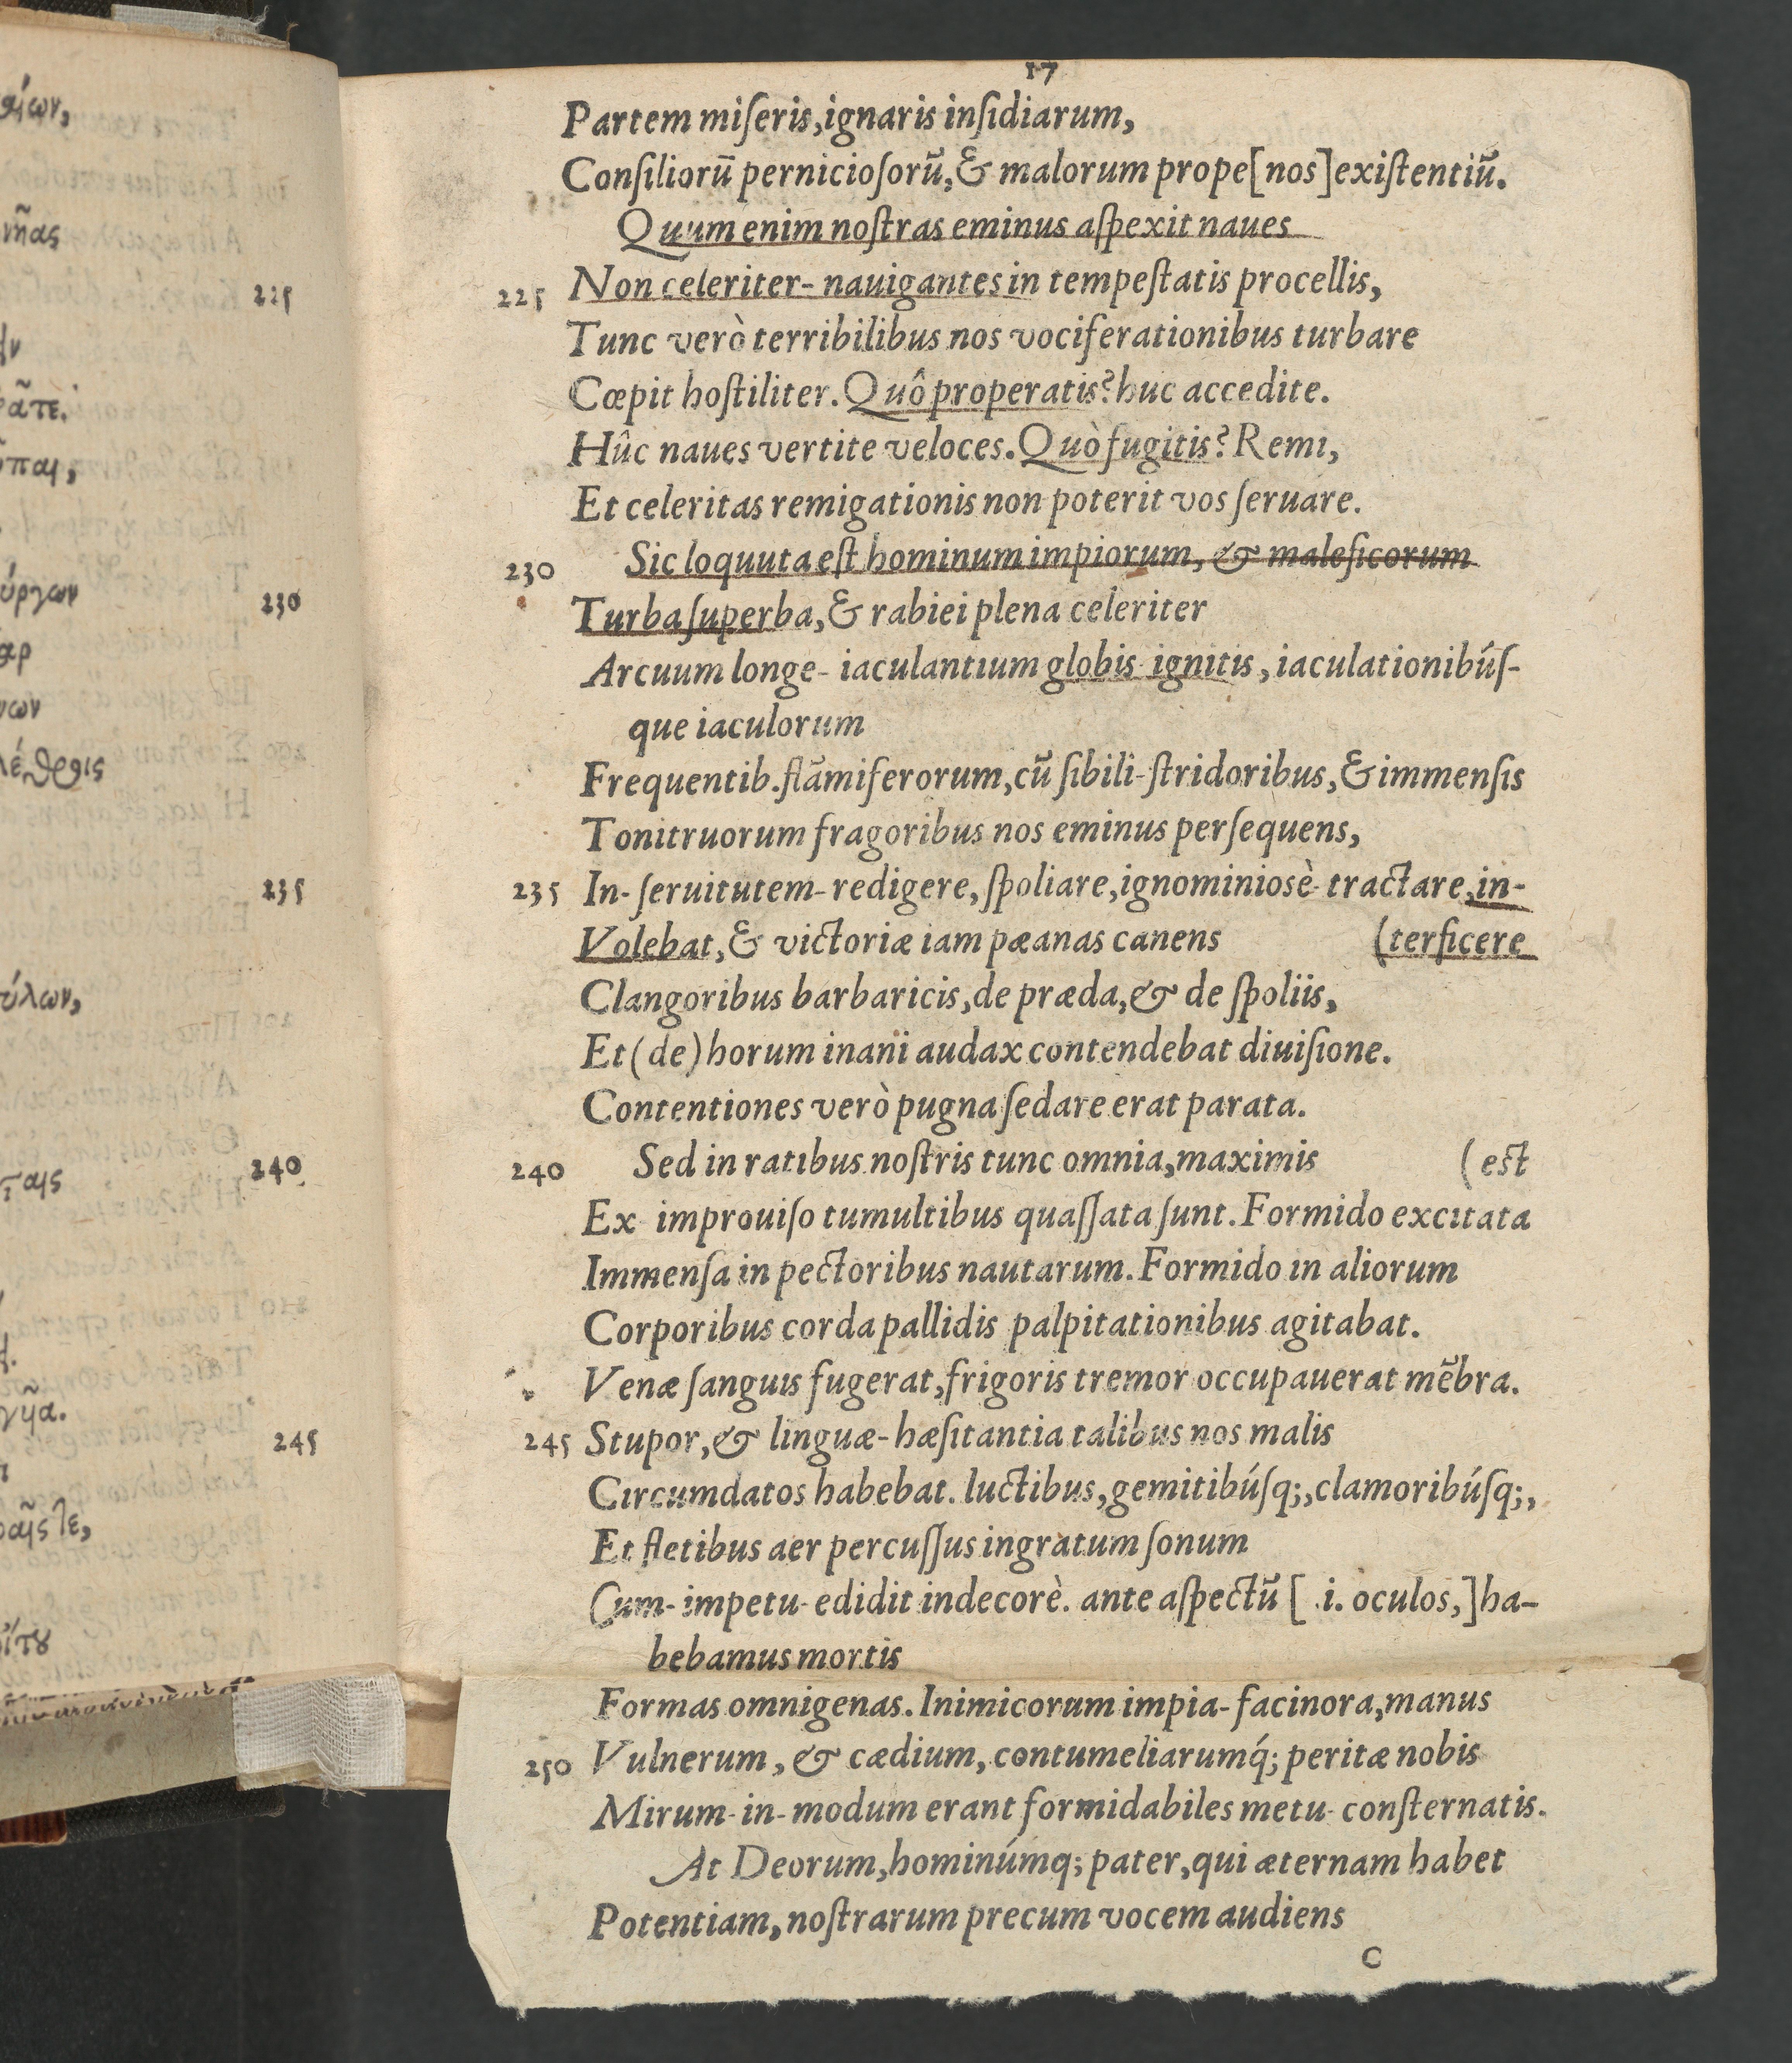 17
Partem miſeris, ignaris inſidiarum,
Conſiliorū pernicioſorū, & malorum prope [nos] exiſtentiū.
Quum enim noſtras eminus aſpexit naues
225 Non celeriter- nauigantes in tempeſtatis procellis,
Tunc verò terribilibus nos vociferationibus turbare
Cœpit hoſtiliter. Quô properatis? huc accedite.
Hûc naues vertite veloces. Quò fugitis? Remi,
Et celeritas remigationis non poterit vos ſeruare.
230 Sic loquuta eſt hominum impiorum, & maleficorum
Turba ſuperba, & rabiei plena celeriter
Arcuum longe- iaculantium globis ignitis, iaculationibúſ-
que iaculorum
Frequentib. flāmiferorum, cū ſibili-ſtridoribus, & immenſis
Tonitruorum fragoribus nos eminus perſequens,
235 In-ſeruitutem-redigere, ſpoliare, ignominiosè-tractare, in-
Volebat, & victoriæ iam pæanas canens (terficere
Clangoribus barbaricis, de præda, & de ſpoliis,
Et (de) horum inani audax contendebat diuiſione.
Contentiones verò pugna ſedare erat parata.
240 Sed in ratibus noſtris tunc omnia, maximis (est
Ex improuiſo tumultibus quaſſata ſunt. Formido excitata
Immenſa in pectoribus nautarum. Formido in aliorum
Corporibus corda pallidis palpitationibus agitabat.
Venæ ſanguis fugerat, frigoris tremor occupauerat mēbra.
245 Stupor, & linguæ-hæſitantia talibus nos malis
Circumdatos habebat. luctibus, gemitibúſq;, clamoribúſq;,
Et fletibus aer percuſſus ingratum ſonum
Cum-impetu-edidit indecorè. ante aſpectū [.i. oculos,] ha-
bebamus mortis
Formas omnigenas. Inimicorum impia-facinora, manus
250 Vulnerum, & cædium, contumeliarumq́; peritæ nobis
Mirum-in-modum erant formidabiles metu-conſternatis.
At Deorum, hominúmq; pater, qui æternam habet
Potentiam, noſtrarum precum vocem audiens
C
225
230
235
240
245